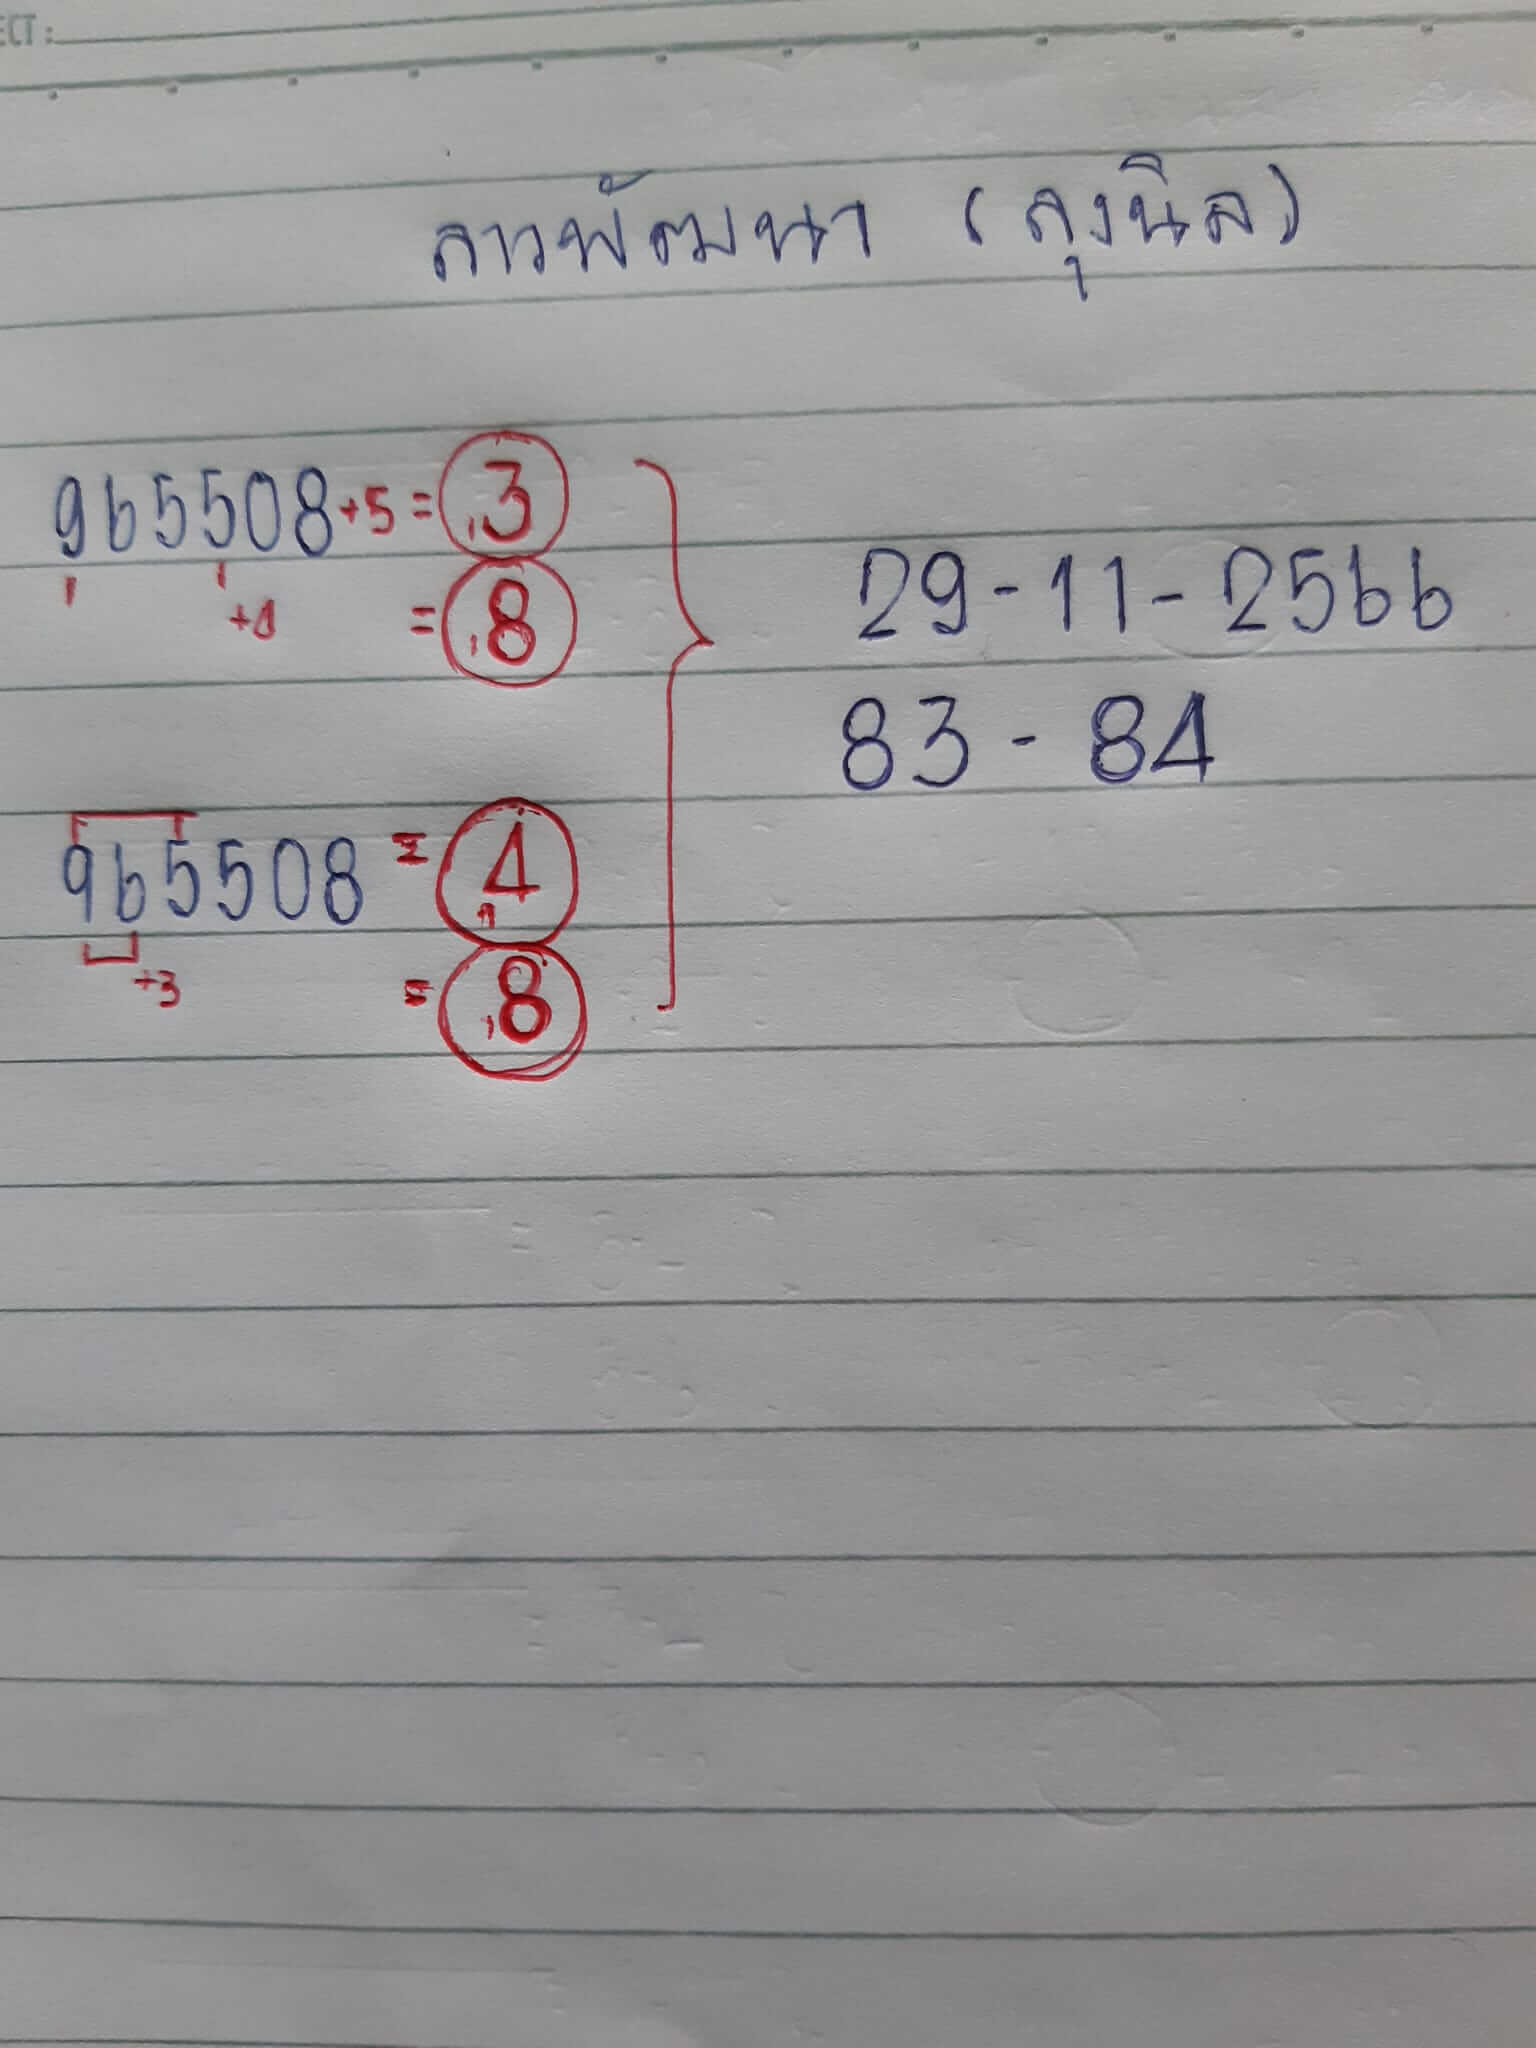 ECT:
ลาวพัฒนา (ลุงนิล)
965508+5 = 3
+4 = 8
29-11-2566
83 - 84
965508 = 4
+3 = 8